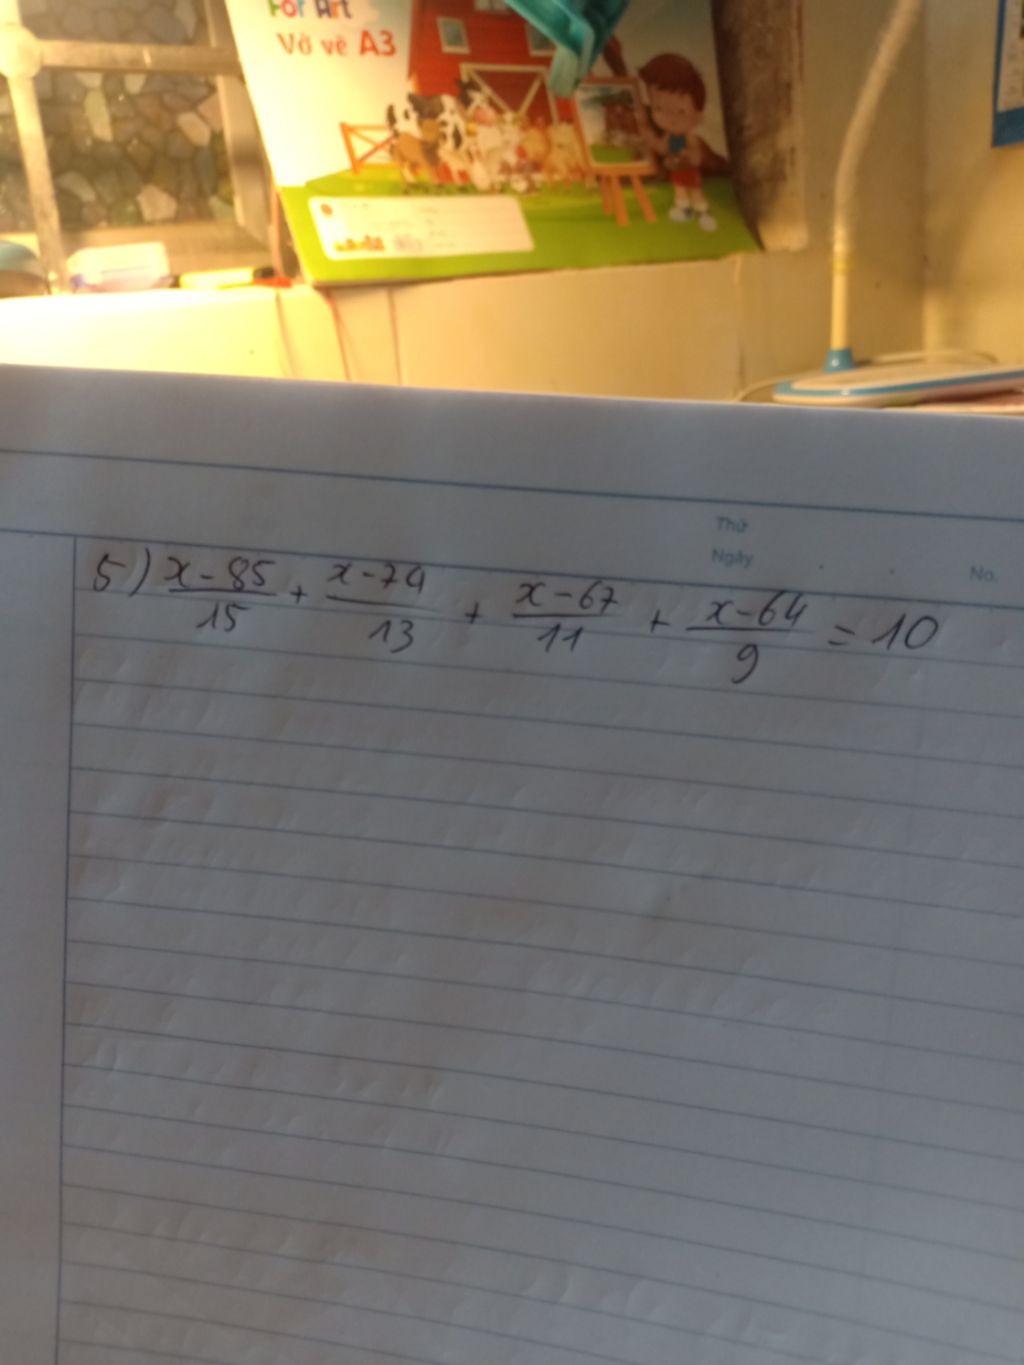 For Art
Vở vẽ A3
Thứ
Ngày
No.
5) x-85/15 + x-74/13 + x-67/11 + x-64/9 = 10